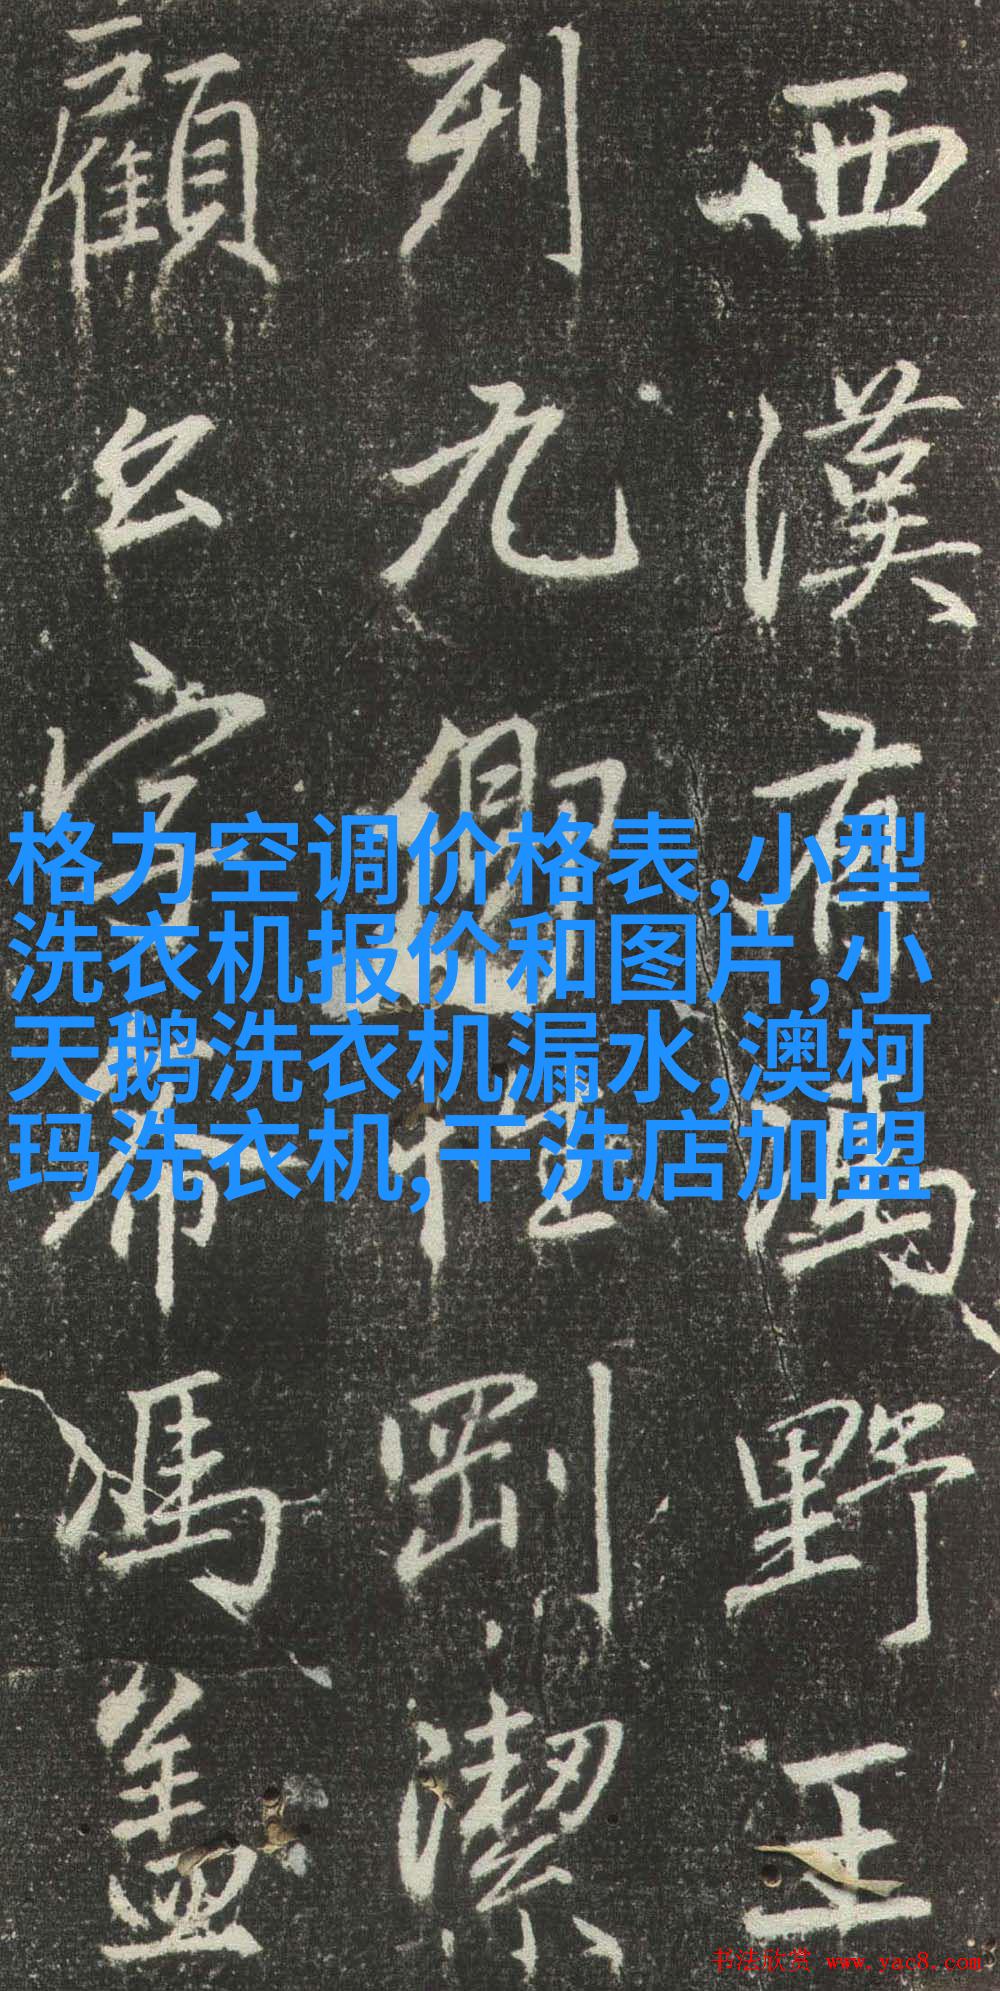 西漢有馮野王
列九卿性剛潔
顧公字希馮蓋
格力空调价格表,小型
洗衣机报价和图片,小
天鹅洗衣机漏水,澳柯
玛洗衣机,干洗店加盟
书法欣赏 www.yac8.com